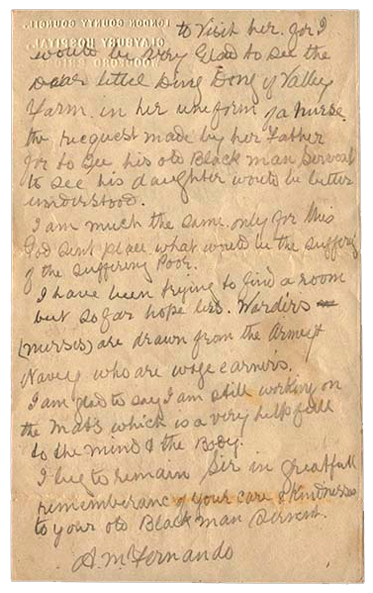 LONDON COUNTY COUNCIL
CLAYBURY HOSPITAL,
WOODFORD BRIDGE
to Visit her. for I
would be very Glad to see the
Dear little Ding Dong of Valley
Farm. in her uneform of a nurse.
the recquest made by her Father
for to see his old Black man Servent
to see his daughter would be better
understood.
I am much the same. only for this
God sent place what would be the suffering
of the suffering Poor.
I have been trying to find a room
but so far hope less. Warders
(nurses) are drawn from the Army &
Navey who are wage earners.
I am glad to say I am still working on
the Mats which is a very help full
to the mind & the Body.
I beg to remain Sir in greatfull
rememberanc of your care & kindness
to your old Black man Servent.
A. M. Fernando